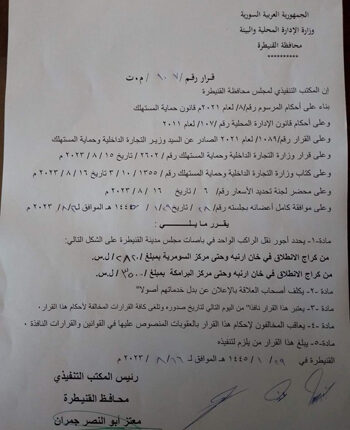 الجمهورية العربية السورية
وزارة الإدارة المحلية والبيئة
محافظة القنيطرة
**********
قرار رقم/ ١٠٧ / م٠ت
إن المكتب التنفيذي لمجلس محافظة القنيطرة
بناء على أحكام المرسوم رقم/٨/ لعام ٢٠٢١م قانون حماية المستهلك
وعلى أحكام قانون الإدارة المحلية رقم/١٠٧/ لعام ٢٠١١
وعلى القرار رقم/١٠٨٩/ لعام ٢٠٢١ الصادر عن السيد وزير التجارة الداخلية وحماية المستهلك
وعلى قرار وزارة التجارة الداخلية وحماية المستهلك رقم/ ٢٦٠٢ / تاريخ ١٥ / ٨ / ٢٠٢٣ م
وعلى كتاب وزارة التجارة الداخلية وحماية المستهلك رقم/ ١٣٥٥ / ١٠ / ٣ تاريخ ١٦ / ٨ / ٢٠٢٣ م
وعلى محضر لجنة تحديد الأسعار رقم/ ٦ / تاريخ ١٦ / ٨ / ٢٠٢٣ م
وعلى موافقة كامل أعضائه بجلسته رقم/ / تاريخ ١٤٤٥ هـ الموافق لـ ٢٠٢٣ م
يقرر ما يلي :
مادة-١- يحدد أجور نقل الراكب الواحد في باصات مجلس مدينة القنيطرة على الشكل التالي:
من كراج الانطلاق في خان ارنبه وحتى مركز السومرية بمبلغ /٢٨٢٠/ ل.س.
من كراج الانطلاق في خان ارنبه وحتى مركز البرامكة بمبلغ /٣٥٠٠/ ل.س.
مادة -٢- يكلف أصحاب العلاقة بالإعلان عن بدل خدماتهم أصولا"
مادة -٣- يعتبر هذا القرار نافذا" من اليوم التالي لتاريخ صدوره وتلغى كافة القرارات المخالفة لأحكام هذا القرار.
مادة -٤- يعاقب المخالفون لإحكام هذا القرار بالعقوبات المنصوص عليها في القوانين والقرارات النافذة .
مادة -٥- يبلغ هذا القرار من يلزم لتنفيذه
القنيطرة في ٢٩ / ١ / ١٤٤٥ هـ الموافق لـ ١٦ / ٨ / ٢٠٢٣ م
رئيس المكتب التنفيذي
محافظ القنيطرة
معتز أبو النصر جمران